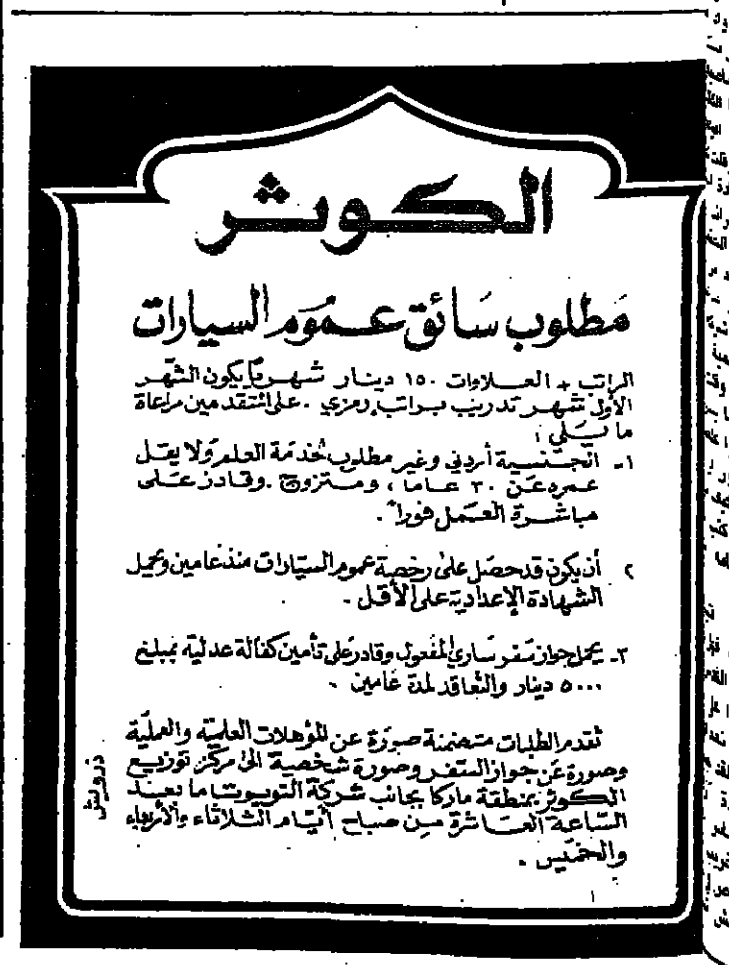 الكوثر
مطلوب سائق عموم السيارات
الراتب + العلاوات ١٥٠ دينار شهرياً يكون الشهر
الأول شهر تدريب براتب رمزي . على المتقدمين مراعاة
ما يلي :
١- الجنسية أردني وغير مطلوب لخدمة العلم ولا يقل
عمره عن ٣٠ عاماً ، ومتزوج . وقادر على
مباشرة العمل فوراً .
٢ أن يكون قد حصل على رخصة عموم السيارات منذ عامين ويحمل
الشهادة الإعدادية على الأقل .
٣- يحمل جواز سفر ساري المفعول وقادر على تأمين كفالة عدلية بمبلغ
٥٠٠٠ دينار والتعاقد لمدة عامين .
تقدم الطلبات متضمنة صورة عن المؤهلات العلمية والعملية
وصورة عن جواز السفر وصورة شخصية الى مركز توزيع
الكوثر بمنطقة ماركا بجانب شركة التويوتا ما بعد
الساعة العاشرة من صباح أيام الثلاثاء والأربعاء
والخميس .
درويش